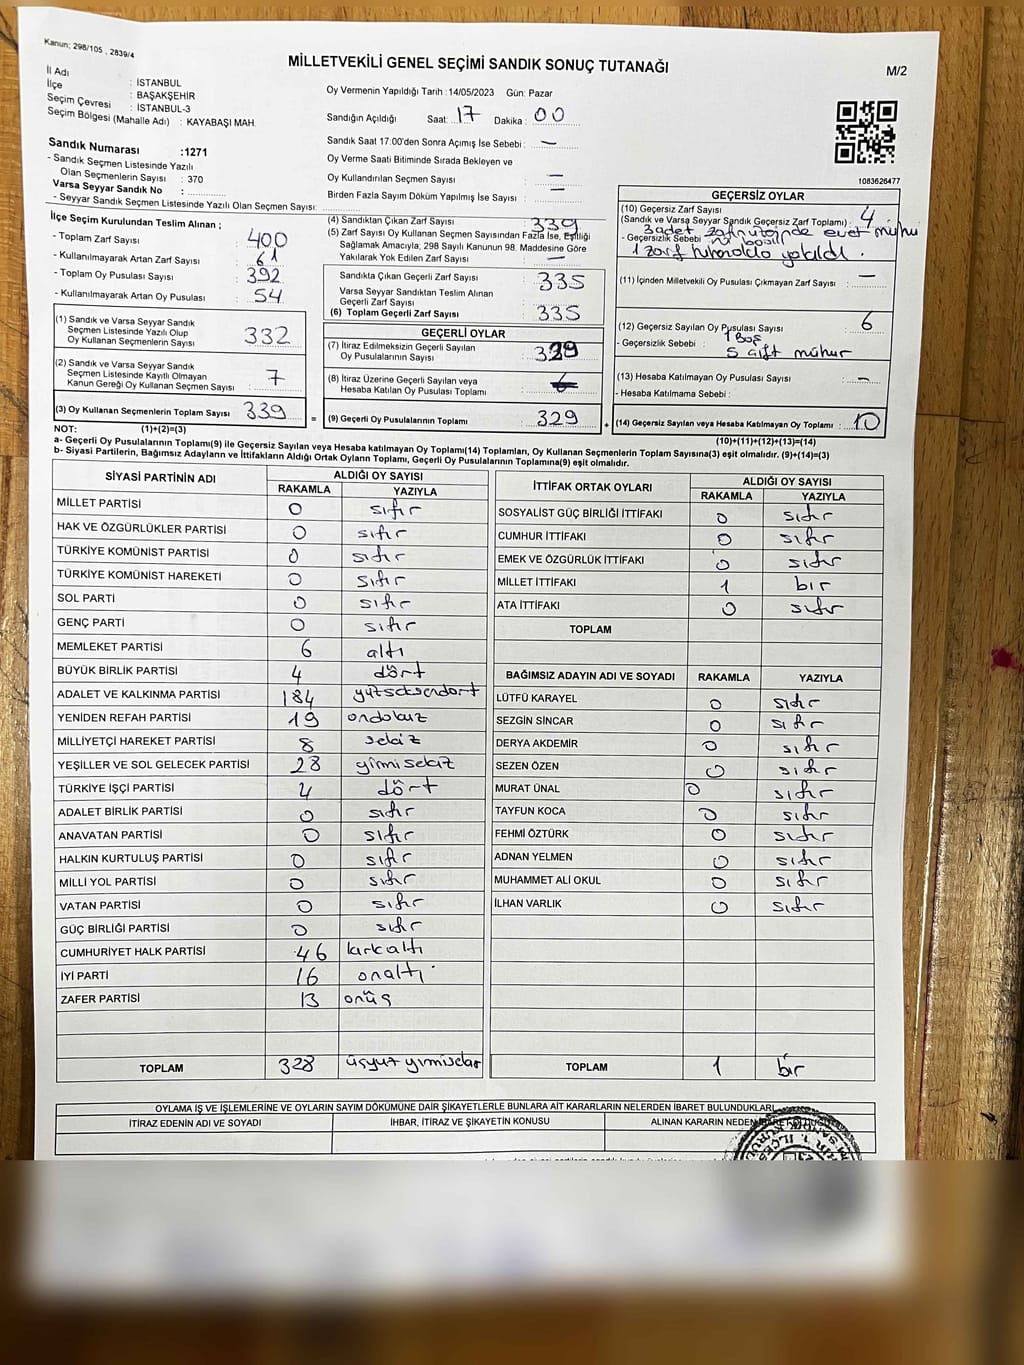 Kanun; 298/105 , 2839/4
MİLLETVEKİLİ GENEL SEÇİMİ SANDIK SONUÇ TUTANAĞI
M/2
İl Adı : İSTANBUL
İlçe : BAŞAKŞEHİR
Seçim Çevresi : İSTANBUL-3
Seçim Bölgesi (Mahalle Adı) : KAYABAŞI MAH.
Sandık Numarası :1271
- Sandık Seçmen Listesinde Yazılı
Olan Seçmenlerin Sayısı : 370
Varsa Seyyar Sandık No :
- Seyyar Sandık Seçmen Listesinde Yazılı Olan Seçmen Sayısı:
Oy Vermenin Yapıldığı Tarih : 14/05/2023 Gün: Pazar
Sandığın Açıldığı Saat: 17 Dakika : 00
Sandık Saat 17:00'den Sonra Açımış İse Sebebi : —
Oy Verme Saati Bitiminde Sırada Bekleyen ve
Oy Kullandırılan Seçmen Sayısı : —
Birden Fazla Sayım Döküm Yapılmış İse Sayısı : —
1083626477
İlçe Seçim Kurulundan Teslim Alınan ;
- Toplam Zarf Sayısı : 400
- Kullanılmayarak Artan Zarf Sayısı : 61
- Toplam Oy Pusulası Sayısı : 392
- Kullanılmayarak Artan Oy Pusulası : 54
(1) Sandık ve Varsa Seyyar Sandık
Seçmen Listesinde Yazılı Olup
Oy Kullanan Seçmenlerin Sayısı : 332
(2) Sandık ve Varsa Seyyar Sandık
Seçmen Listesinde Kayıtlı Olmayan
Kanun Gereği Oy Kullanan Seçmen Sayısı : 7
(3) Oy Kullanan Seçmenlerin Toplam Sayısı : 339 =
(4) Sandıktan Çıkan Zarf Sayısı : 339
(5) Zarf Sayısı Oy Kullanan Seçmen Sayısından Fazla İse, Eşitliği
Sağlamak Amacıyla, 298 Sayılı Kanunun 98. Maddesine Göre
Yakılarak Yok Edilen Zarf Sayısı : —
Sandıkta Çıkan Geçerli Zarf Sayısı : 335
Varsa Seyyar Sandıktan Teslim Alınan
Geçerli Zarf Sayısı :
(6) Toplam Geçerli Zarf Sayısı : 335
GEÇERLİ OYLAR
(7) İtiraz Edilmeksizin Geçerli Sayılan
Oy Pusulalarının Sayısı : 329
(8) İtiraz Üzerine Geçerli Sayılan veya
Hesaba Katılan Oy Pusulaları Toplamı :
(9) Geçerli Oy Pusulalarının Toplamı : 329 +
GEÇERSİZ OYLAR
(10) Geçersiz Zarf Sayısı
(Sandık ve Varsa Seyyar Sandık Geçersiz Zarf Toplamı) : 4
- Geçersizlik Sebebi : 3 adet zarfın üstünde evet mühü
1 zarf yakıldı.
(11) İçinden Milletvekili Oy Pusulası Çıkmayan Zarf Sayısı : —
(12) Geçersiz Sayılan Oy Pusulası Sayısı : 6
- Geçersizlik Sebebi : 1 Boş
5 çift mühür
(13) Hesaba Katılmayan Oy Pusulası Sayısı : —
- Hesaba Katılmama Sebebi :
(14) Geçersiz Sayılan veya Hesaba Katılmayan Oy Toplamı : 10
NOT: (1)+(2)=(3) (10)+(11)+(12)+(13)=(14)
a- Geçerli Oy Pusulalarının Toplamı(9) ile Geçersiz Sayılan veya Hesaba katılmayan Oy Toplamı(14) Toplamları, Oy Kullanan Seçmenlerin Toplam Sayısına(3) eşit olmalıdır. (9)+(14)=(3)
b- Siyasi Partilerin, Bağımsız Adayların ve İttifakların Aldığı Ortak Oyların Toplamı, Geçerli Oy Pusulalarının Toplamına(9) eşit olmalıdır.
SİYASİ PARTİNİN ADI ALDIĞI OY SAYISI
RAKAMLA YAZIYLA
MİLLET PARTİSİ 0 sıfır
HAK VE ÖZGÜRLÜKLER PARTİSİ 0 sıfır
TÜRKİYE KOMÜNİST PARTİSİ 0 sıfır
TÜRKİYE KOMÜNİST HAREKETİ 0 sıfır
SOL PARTİ 0 sıfır
GENÇ PARTİ 0 sıfır
MEMLEKET PARTİSİ 6 altı
BÜYÜK BİRLİK PARTİSİ 4 dört
ADALET VE KALKINMA PARTİSİ 184 yüzseksendört
YENİDEN REFAH PARTİSİ 19 ondokuz
MİLLİYETÇİ HAREKET PARTİSİ 8 sekiz
YEŞİLLER VE SOL GELECEK PARTİSİ 28 yirmisekiz
TÜRKİYE İŞÇİ PARTİSİ 4 dört
ADALET BİRLİK PARTİSİ 0 sıfır
ANAVATAN PARTİSİ 0 sıfır
HALKIN KURTULUŞ PARTİSİ 0 sıfır
MİLLİ YOL PARTİSİ 0 sıfır
VATAN PARTİSİ 0 sıfır
GÜÇ BİRLİĞİ PARTİSİ 0 sıfır
CUMHURİYET HALK PARTİSİ 46 kırkaltı
İYİ PARTİ 16 onaltı
ZAFER PARTİSİ 13 onüç
TOPLAM 328 üçyüz yirmisekiz
İTTİFAK ORTAK OYLARI ALDIĞI OY SAYISI
RAKAMLA YAZIYLA
SOSYALİST GÜÇ BİRLİĞİ İTTİFAKI 0 sıfır
CUMHUR İTTİFAKI 0 sıfır
EMEK VE ÖZGÜRLÜK İTTİFAKI 0 sıfır
MİLLET İTTİFAKI 1 bir
ATA İTTİFAKI 0 sıfır
TOPLAM
BAĞIMSIZ ADAYIN ADI VE SOYADI RAKAMLA YAZIYLA
LÜTFÜ KARAYEL 0 sıfır
SEZGİN SİNCAR 0 sıfır
DERYA AKDEMİR 0 sıfır
SEZEN ÖZEN 0 sıfır
MURAT ÜNAL 0 sıfır
TAYFUN KOCA 0 sıfır
FEHMİ ÖZTÜRK 0 sıfır
ADNAN YELMEN 0 sıfır
MUHAMMET ALİ OKUL 0 sıfır
İLHAN VARLIK 0 sıfır
TOPLAM 1 bir
OYLAMA İŞ VE İŞLEMLERİNE VE OYLARIN SAYIM DÖKÜMÜNE DAİR ŞİKAYETLERLE BUNLARA AİT KARARLARIN NELERDEN İBARET BULUNDUKLARI
İTİRAZ EDENİN ADI VE SOYADI İHBAR, İTİRAZ VE ŞİKAYETİN KONUSU ALINAN KARARIN NEDEN